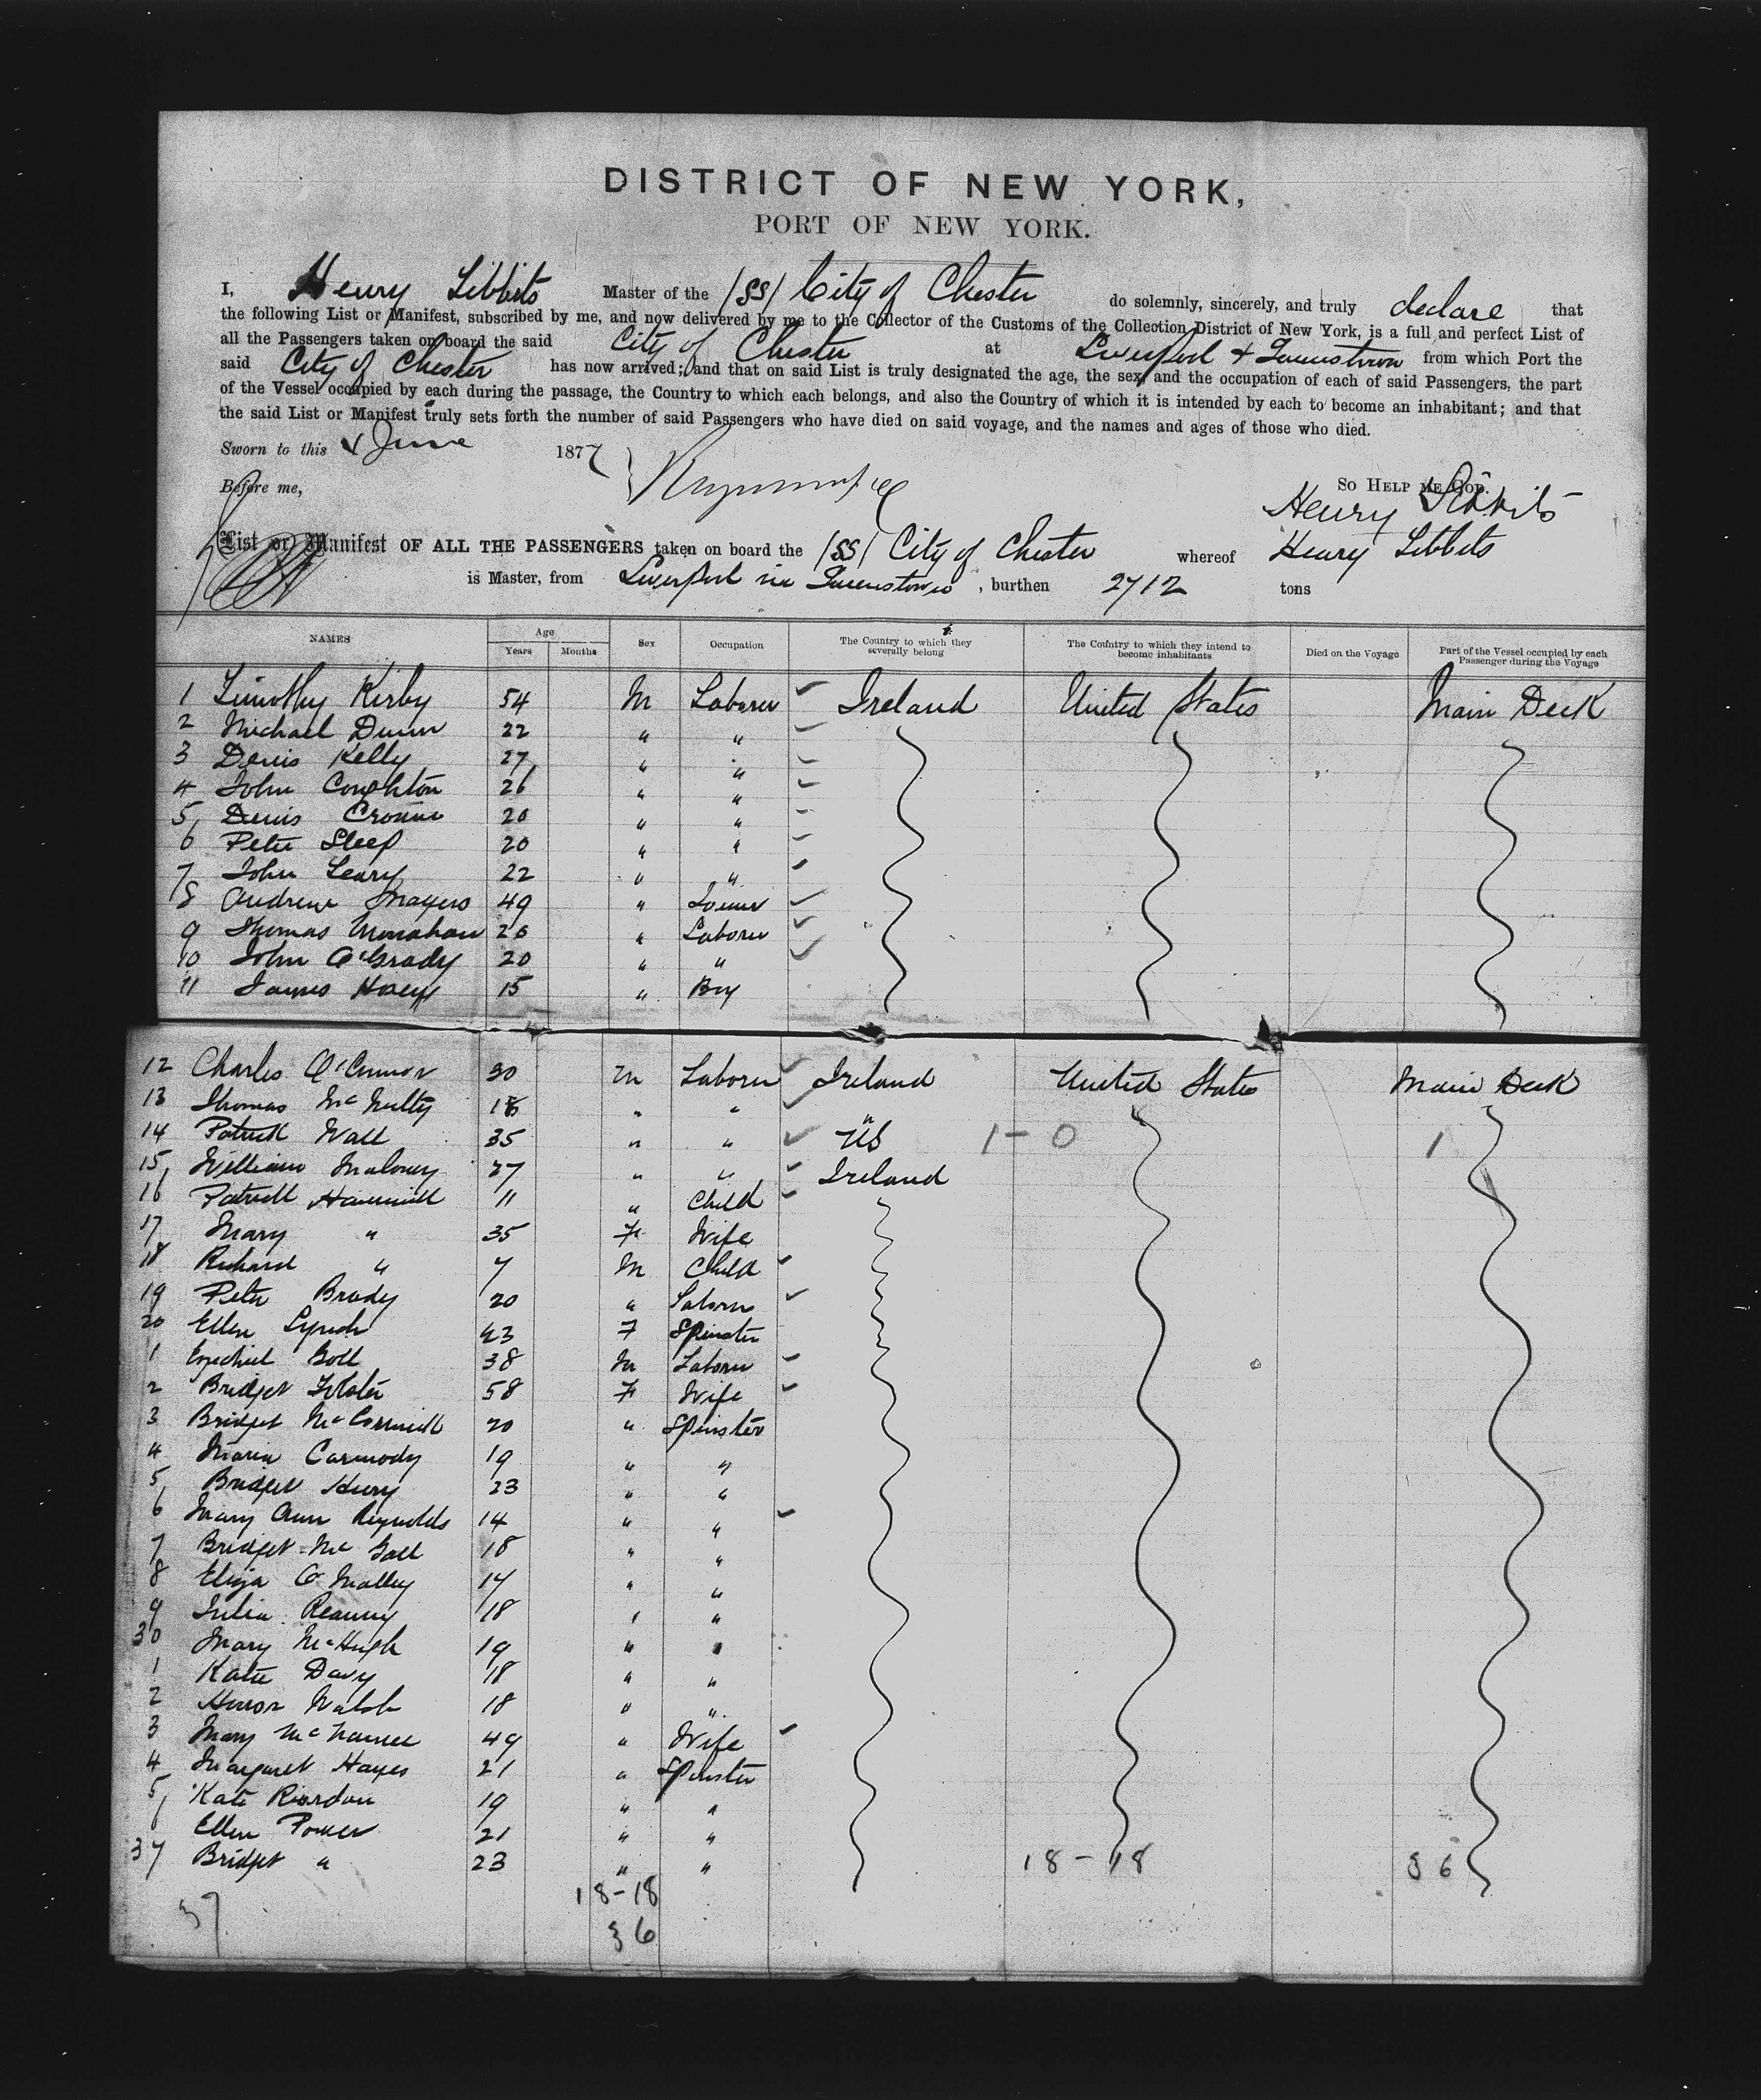 DISTRICT OF NEW YORK,
PORT OF NEW YORK.
I, Henry Tibbits Master of the (SS) City of Chester do solemnly, sincerely, and truly declare that
the following List or Manifest, subscribed by me, and now delivered by me to the Collector of the Customs of the Collection District of New York, is a full and perfect List of
all the Passengers taken on board the said City of Chester at Liverpool & Queenstown from which Port the
said City of Chester has now arrived; and that on said List is truly designated the age, the sex, and the occupation of each of said Passengers, the part
of the Vessel occupied by each during the passage, the Country to which each belongs, and also the Country of which it is intended by each to become an inhabitant; and that
the said List or Manifest truly sets forth the number of said Passengers who have died on said voyage, and the names and ages of those who died.
Sworn to this June 1877
Before me, So Help me God.
Henry Tibbits
List or Manifest OF ALL THE PASSENGERS taken on board the (SS) City of Chester whereof Henry Tibbits
is Master, from Liverpool via Queenstown, burthen 2712 tons
NAMES Age Years Months Sex Occupation The Country to which they severally belong The Country to which they intend to become inhabitants Died on the Voyage Part of the Vessel occupied by each Passenger during the Voyage
1 Timothy Kirby 54 M Laborer Ireland United States Main Deck
2 Michael Dunn 22 " "
3 Denis Kelly 27 " "
4 John Coughton 26 " "
5 Denis Cronin 20 " "
6 Peter Sleep 20 " "
7 John Leary 22 " "
8 Andrew Mayers 49 "
9 Thomas Monahan 20 " Laborer
10 John O'Grady 20 " "
11 James Hoey 15 " Boy
12 Charles O'Connor 30 M Laborer Ireland United States Main Deck
13 Thomas McNulty 18 " " "
14 Patrick Wall 35 " " US 1-0 1
15 William Maloney 27 " " Ireland
16 Patrick 11 " Child
17 Mary " 35 F Wife
18 Richard " 7 M Child
19 Peter Brady 20 " Laborer
20 Ellen Lynch 23 F Spinster
1 Ezechiel Goll 38 M Laborer
2 Bridget 58 F Wife
3 Bridget McCormick 20 " Spinster
4 Maria Carmody 19 " "
5 Bridget Henry 23 " "
6 Mary Ann Reynolds 14 " "
7 Bridget McGoll 18 " "
8 Eliza O Malley 14 " "
9 Julia 18 " "
30 Mary McHugh 19 " "
1 Katie Davy 18 " "
2 Honor Walsh 18 " "
3 Mary McNamee 49 " Wife
4 Margaret Hayes 21 " Spinster
5 Kate Riordan 19 " "
6 Ellen Power 21 " "
37 Bridget " 23 " " 18-18 36
18-18
37 36